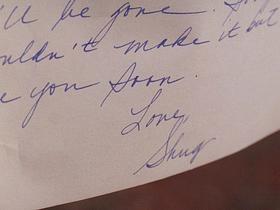 'll be gone.
uldn't make it but
e you soon.
Love,
Shug